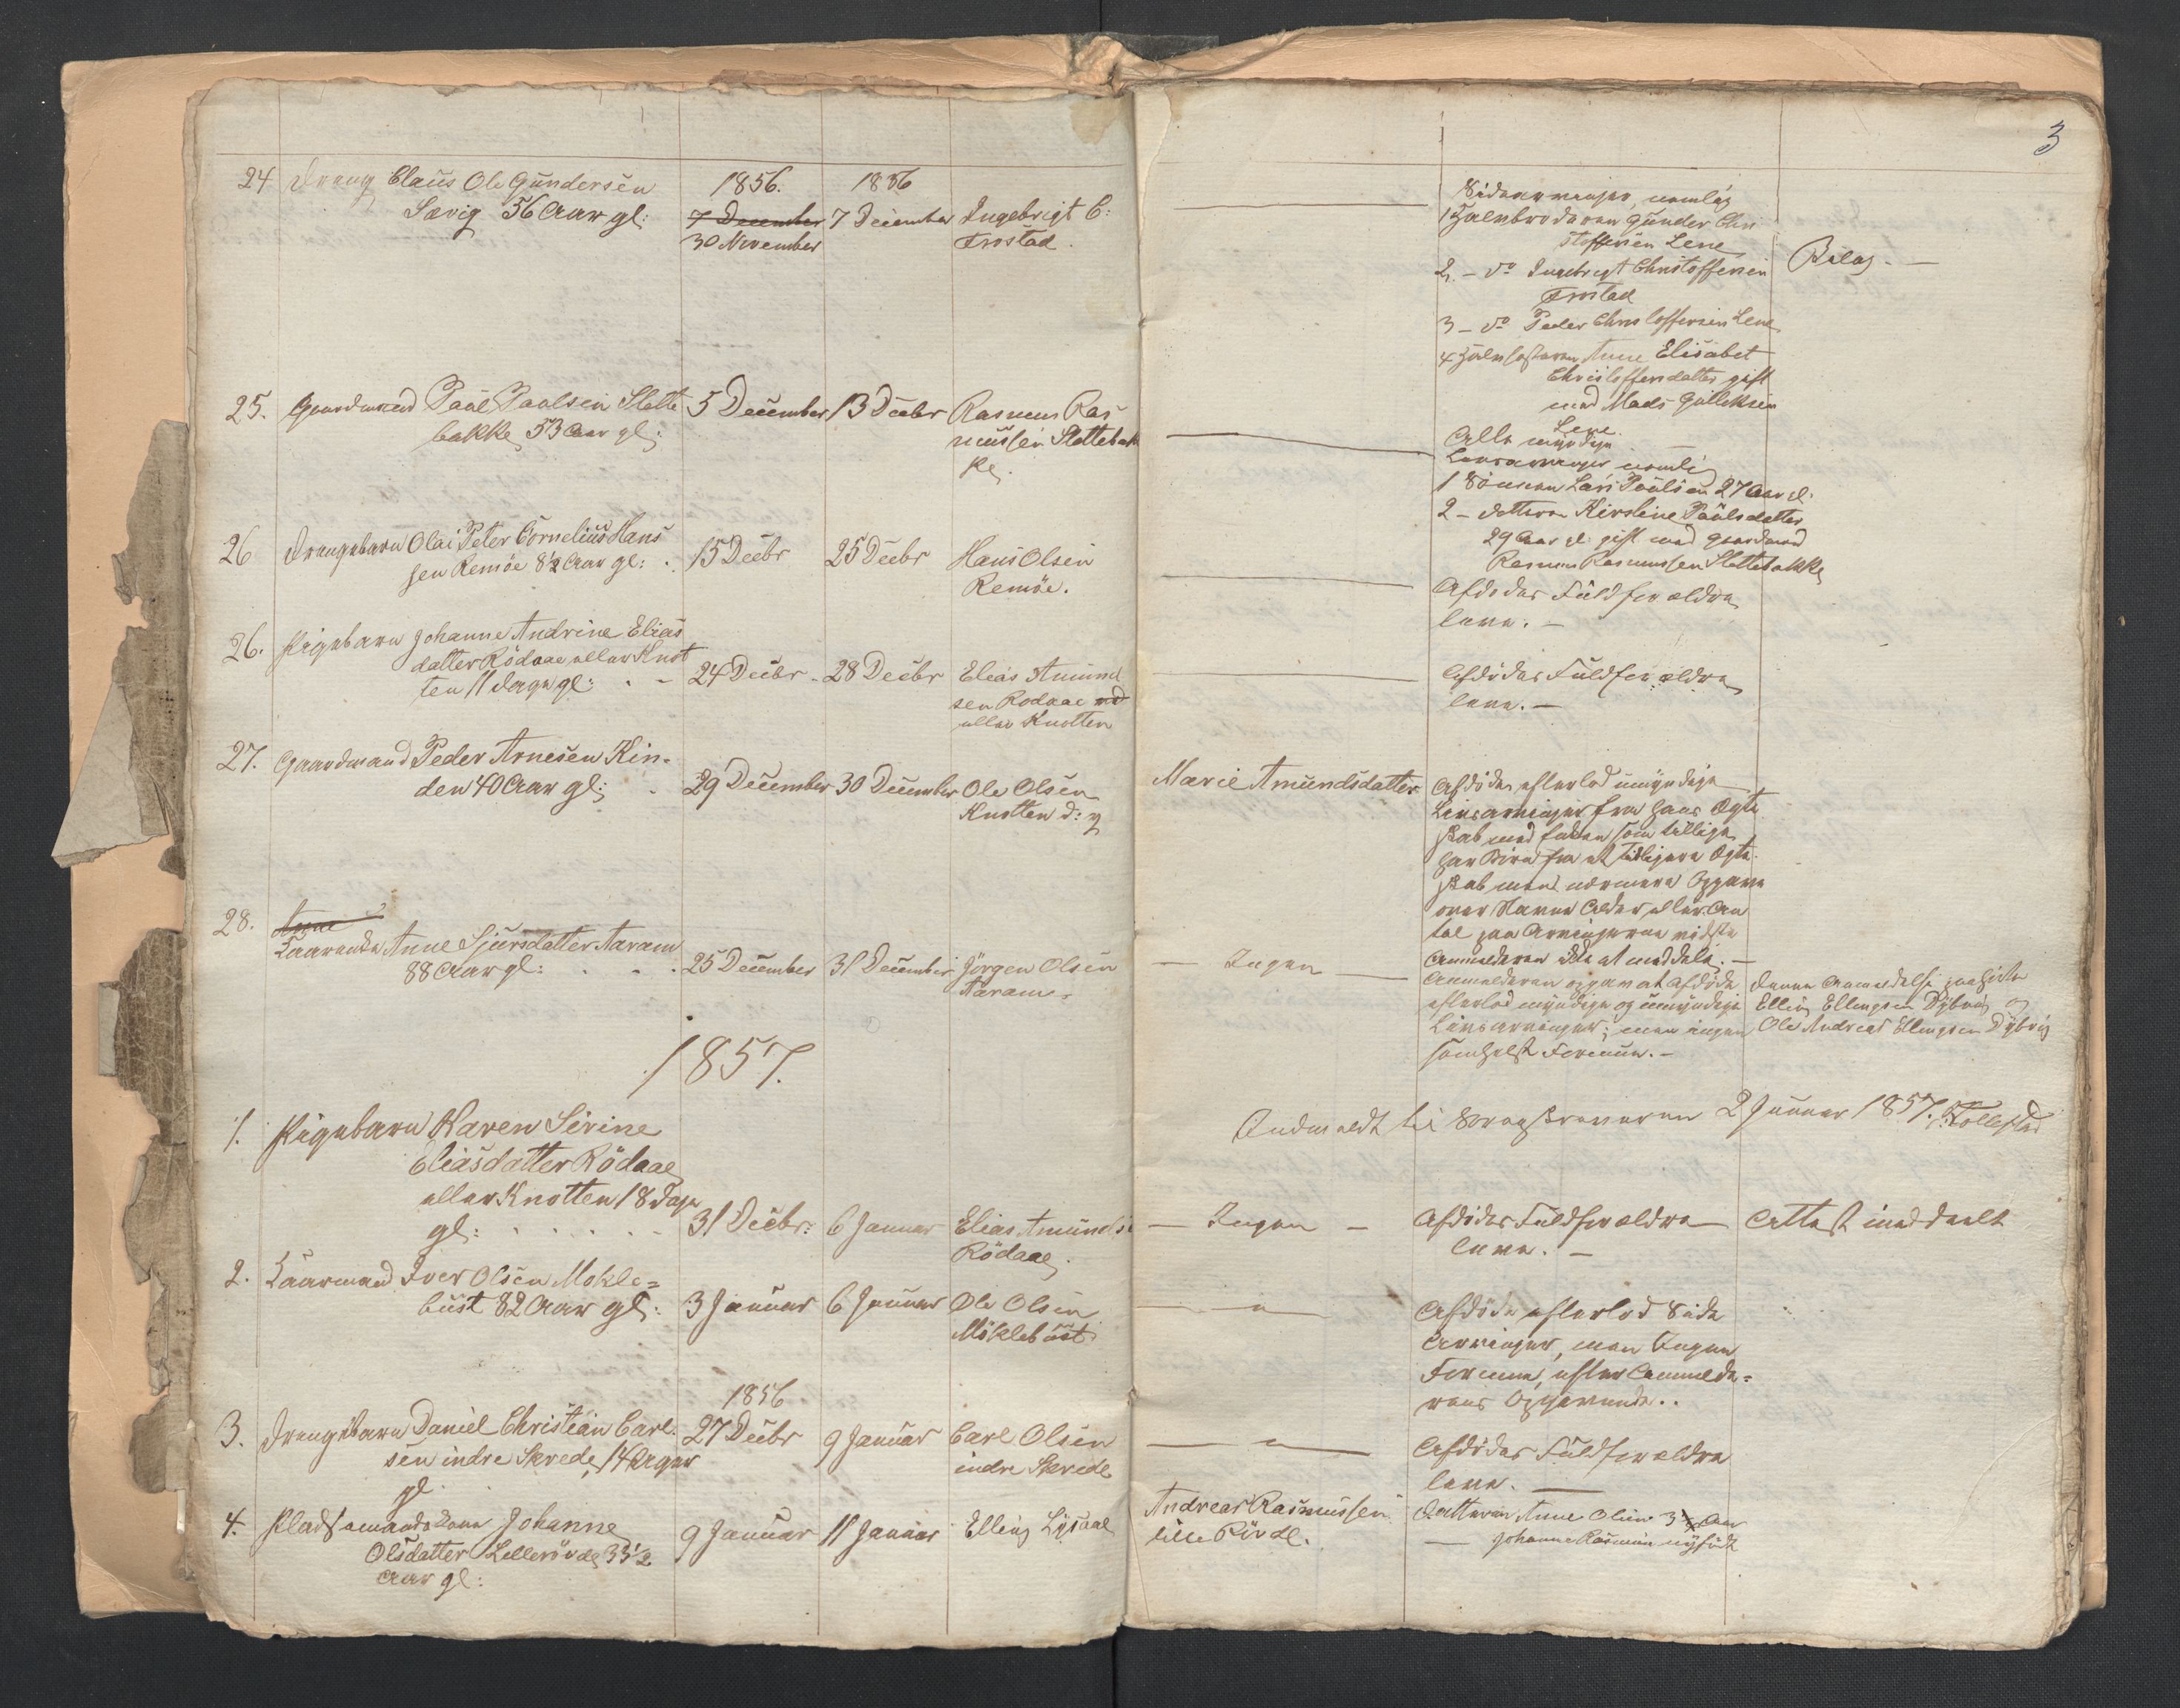 3
24 Dreng Claus Ole Gundersen
Sævig 56 Aar gl:
1856.
7 December
30 November
1856
7 December
Ingebrigt C:
Frostad.
Sidearvinger, nemlig
1 Halvbroderen Gunder Chri
stoffersen Lene
2 - do Ingebrigt Christoffersen
Frostad
3 - do Peder Christoffersen Lene
4 Halvsøsteren Anne Elisabet
Christoffersdatter gift
med Mads Gulleksen
Lene.
Alle myndige
Bilag. —
25. Gaardmand Paul Paulsen Slotte
bakke 53 Aar gl:
5 December
13 Decbr
Rasmus Ras
mussen Slottebak
ke.
Livsarvinger nemlig
1 Sönnen Lars Paulsen 27 Aar gl.
2 - Datteren Kirstine Paulsdatter
29 Aar gl. gift med Gaardmand
Rasmus Rasmussen Slottebakke
26 Drengebarn Olai Peter Cornelius Hans
sen Remöe 8½ Aar gl:
15 Decbr
25 Decbr
Hans Olsen
Remöe.
Afdödes Fuldforældre
leve. —
26. Pigebarn Johanne Andrine Elias
datter Rödaae eller Knot
ten 11 Dage gl:
24 Decbr -
28 Decbr
Elias Amund
sen Rodaae
eller Knotten
Afdödes Fuldforældre
leve. —
27. Gaardmand Peder Arnesen Kin-
den 40 Aar gl:
29 December
30 December
Ole Olsen
Knotten
Marie Amundsdatter
Afdöde efterlod umyndige
Livsarvinger fra hans Ægte
skab med Enken som tillige
har Börn fra et tidligere Ægte-
skab men nærmere Opgave
over Navne Alder eller An
tal paa Arvingerne vidste
Anmelderen ikke at meddele. —
28. Anne
Kaarenke Anne Sjursdatter Aaram
88 Aar gl:
25 December
31 December
Jörgen Olsen
Aaram.
— Ingen —
Anmelderen opgav at Afdöde
efterlod myndige og umyndige
Livsarvinger; men ingen
somhelst Formue. —
Denne Anmeldelse
Elling Ellingsen Dybvig og
Ole Andreas Ellingsen Dybvig
1857.
Indmeldt til Sorenskriveren 2 Januar 1857.
1. Pigebarn Karen Sirine
Eliasdatter Rödaae
eller Knotten 18 Dage
gl:
31 Decbr:
6 Januar
Elias Amunds
Rödaae.
— Ingen —
Afdödes Fuldforældre
leve. —
Attest meddeelt
2. Kaarmand Iver Olsen Mokle-
bust 82 Aar gl:
3 Januar
6 Januar
Ole Olsen
Möklebust
— " —
Afdöde efterlod Side
Arvinger, men Ingen
Formue, efter Anmelde-
rens Opgivende..
3. Drengebarn Daniel Christian Carl-
sen indre Skrede, 14 Dager
gl
1856
27 Decbr
9 Januar
Carl Olsen
indre Skrede
— " —
Afdödes Fuldforældre
leve. —
4. Pladsemandskone Johanne
Olsdatter Lellerövde 33½
Aar gl:
9 Januar
11 Januar
Elling Lysaae
Andreas Rasmussen
lille Rövde.
Datteren Anne Oline 3 Aar
— Johanne Rasmine nyfödt